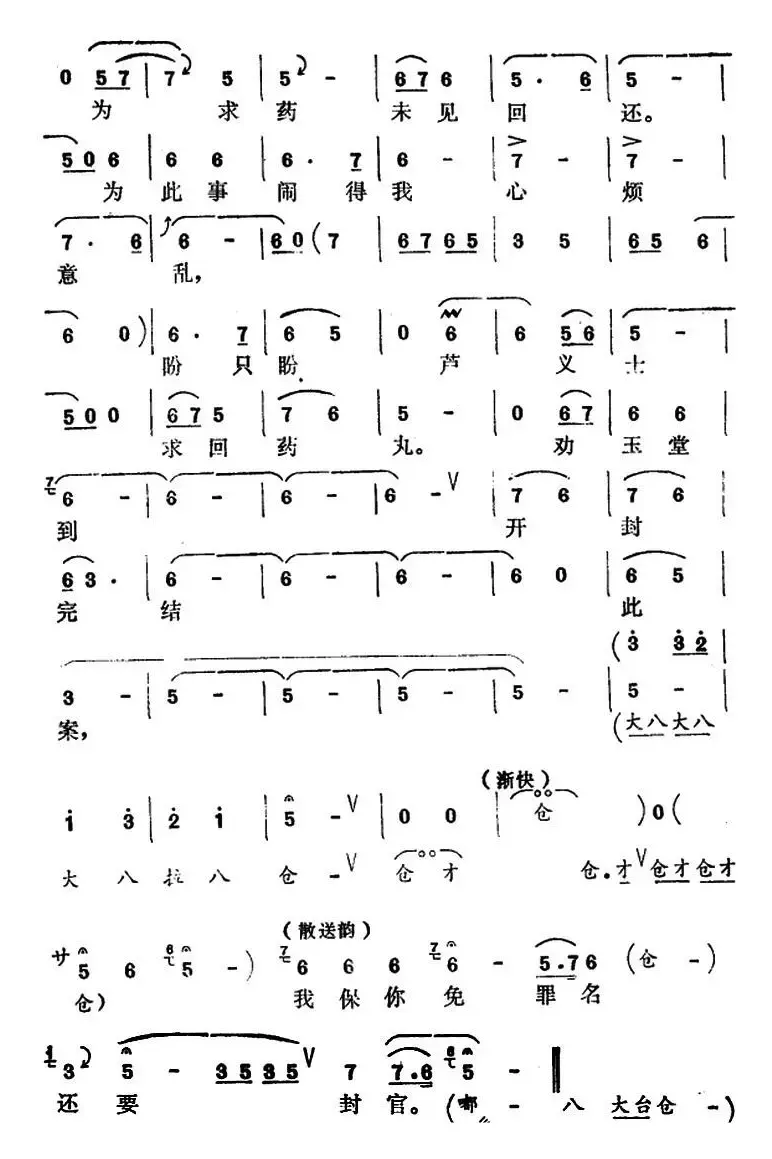 0 5 7 | 7 5 | 5 - | 6 7 6 | 5 . 6 | 5 - |
为 求 药 未 见 回 还。
5 0 6 | 6 6 | 6 . 7 | 6 - | 7 - | 7 -
为 此 事 闹 得 我 心 烦
7 . 6 | 6 - | 6 0 ( 7 | 6 7 6 5 | 3 5 | 6 5 6 |
意 乱，
6 0 ) | 6 . 7 | 6 5 | 0 6 | 6 5 6 | 5 - |
盼 只 盼 芦 义 士
5 0 0 | 6 7 5 | 7 6 | 5 - | 0 6 7 | 6 6 |
求 回 药 丸。 劝 玉 堂
7 6 - | 6 - | 6 - | 6 - V | 7 6 | 7 6 |
到 开 封
6 3 . | 6 - | 6 - | 6 - | 6 0 | 6 5 |
完 结 此
( 3 3 2 |
3 - | 5 - | 5 - | 5 - | 5 - | 5 - |
案， (大 八 大 八
(渐快)
1 3 | 2 1 | 5 - V | 0 0 | 仓 ) 0 (
大 八 拉 八 仓 - V 仓 才 仓 . 才 V 仓 才 仓 才
(散送韵)
サ 5 6 6 5 - ) 7 6 6 6 7 6 - 5 . 7 6 ( 仓 - )
仓) 我 保 你 免 罪 名
1 3 5 - 3 5 3 5 V 7 7 . 6 6 5 -
还 要 封 官。 (嘟 - 八 大 台 仓 -)